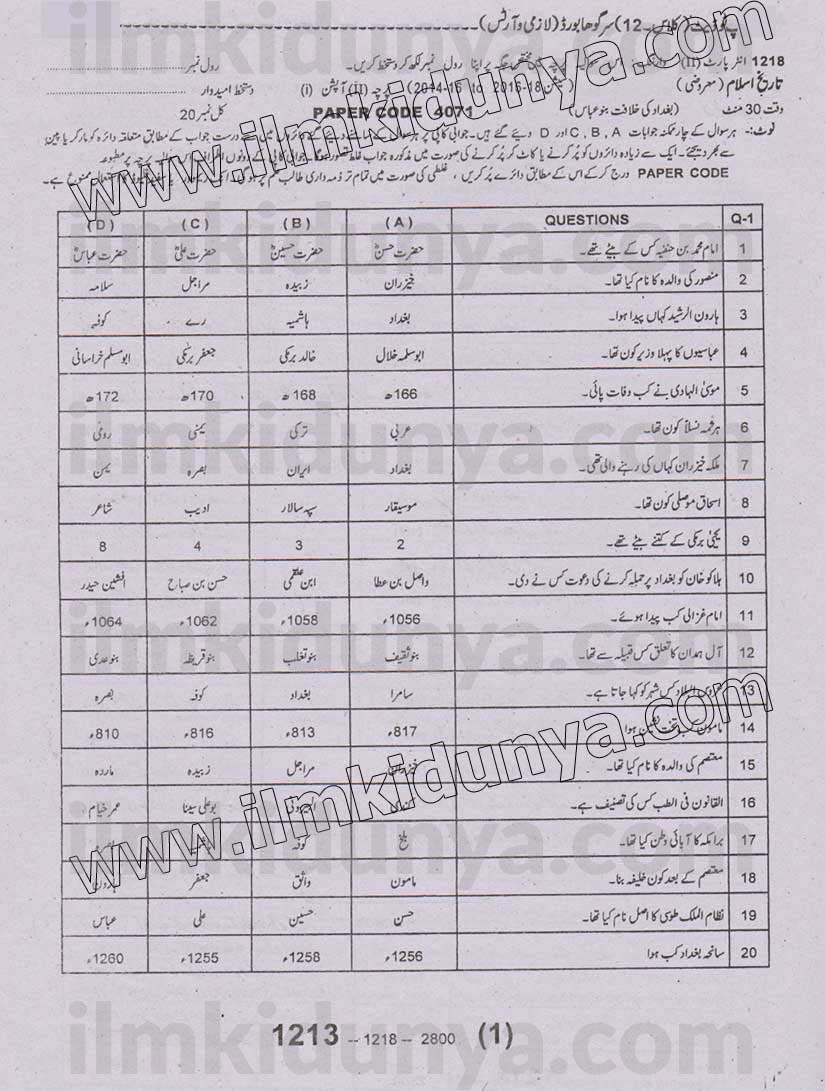 (کلاس ۔ 12) سرگودھا بورڈ (لازمی و آرٹس)
1218 انٹر پارٹ (II) رول نمبر لکھ کر دستخط کریں۔ رول نمبر
تاریخ اسلام (معروضی) (سیشن 2014-16 to 2016-18) (II) آپشن (i) دستخط امیدوار
وقت 30 منٹ (بغداد کی خلافت بنو عباس) PAPER CODE 4071 کل نمبر 20
نوٹ:- ہر سوال کے چار ممکنہ جوابات C, B, A اور D دیئے گئے ہیں۔ جوابی کاپی پر ہر سوال کے سامنے دیئے گئے دائروں میں سے درست جواب کے مطابق متعلقہ دائرہ کو مارکر یا پین
سے بھر دیجئے۔ ایک سے زیادہ دائروں کو پُر کرنے یا کاٹ کر پُر کرنے کی صورت میں مذکورہ جواب غلط تصور ہو گا۔ جوابی کاپی کے دونوں اطراف اس سوالیہ پرچہ پر مطبوعہ
PAPER CODE درج کر کے اس کے مطابق دائرے پُر کریں، غلطی کی صورت میں تمام تر ذمہ داری طالب علم پر ہو گی۔ استعمال ممنوع ہے۔
Q-1 QUESTIONS (A) (B) (C) (D)
1 امام محمد بن حنفیہ کس کے بیٹے تھے۔ حضرت حسنؓ حضرت حسینؓ حضرت علیؓ حضرت عباسؓ
2 منصور کی والدہ کا نام کیا تھا۔ خیزران زبیدہ مراجل سلامہ
3 ہارون الرشید کہاں پیدا ہوا۔ بغداد ہاشمیہ رے کوفہ
4 عباسیوں کا پہلا وزیر کون تھا۔ ابو سلمہ خلال خالد برمکی جعفر برمکی ابو مسلم خراسانی
5 موسیٰ الہادی نے کب وفات پائی۔ 166ھ 168ھ 170ھ 172ھ
6 ہرثمہ نسلاً کون تھا۔ عربی ترکی یمنی رومی
7 ملکہ خیزران کہاں کی رہنے والی تھی۔ بغداد ایران بصرہ یمن
8 اسحاق موصلی کون تھا۔ موسیقار سپہ سالار ادیب شاعر
9 یحییٰ برمکی کے کتنے بیٹے تھے۔ 2 3 4 8
10 ہلاکو خان کو بغداد پر حملہ کرنے کی دعوت کس نے دی۔ واصل بن عطا ابن علقمی حسن بن صباح افشین حیدر
11 امام غزالی کب پیدا ہوئے۔ 1056ء 1058ء 1062ء 1064ء
12 آل ہمدان کا تعلق کس قبیلہ سے تھا۔ بنو ثقیف بنو تغلب بنو قریظہ بنو عدی
13 عروس البلاد کس شہر کو کہا جاتا ہے۔ سامرا بغداد کوفہ بصرہ
14 مامون کب تخت نشین ہوا 817ء 813ء 816ء 810ء
15 معتصم کی والدہ کا نام کیا تھا۔ خیزران مراجل زبیدہ ماردہ
16 القانون فی الطب کس کی تصنیف ہے۔ البیرونی بو علی سینا عمر خیام
17 برامکہ کا آبائی وطن کیا تھا۔ بلخ کوفہ
18 معتصم کے بعد کون خلیفہ بنا۔ مامون واثق جعفر ہارون
19 نظام الملک طوسی کا اصل نام کیا تھا۔ حسن حسین علی عباس
20 سانحہ بغداد کب ہوا 1256ء 1258ء 1255ء 1260ء
1213 -- 1218 -- 2800 (1)
www.ilmkidunya.com
www.ilmkidunya.com
ilmkidunya.com
ilmkidunya.com
ilmkidunya.com
ilmkidunya.com
ilmkidunya.com
ilmkidunya.com